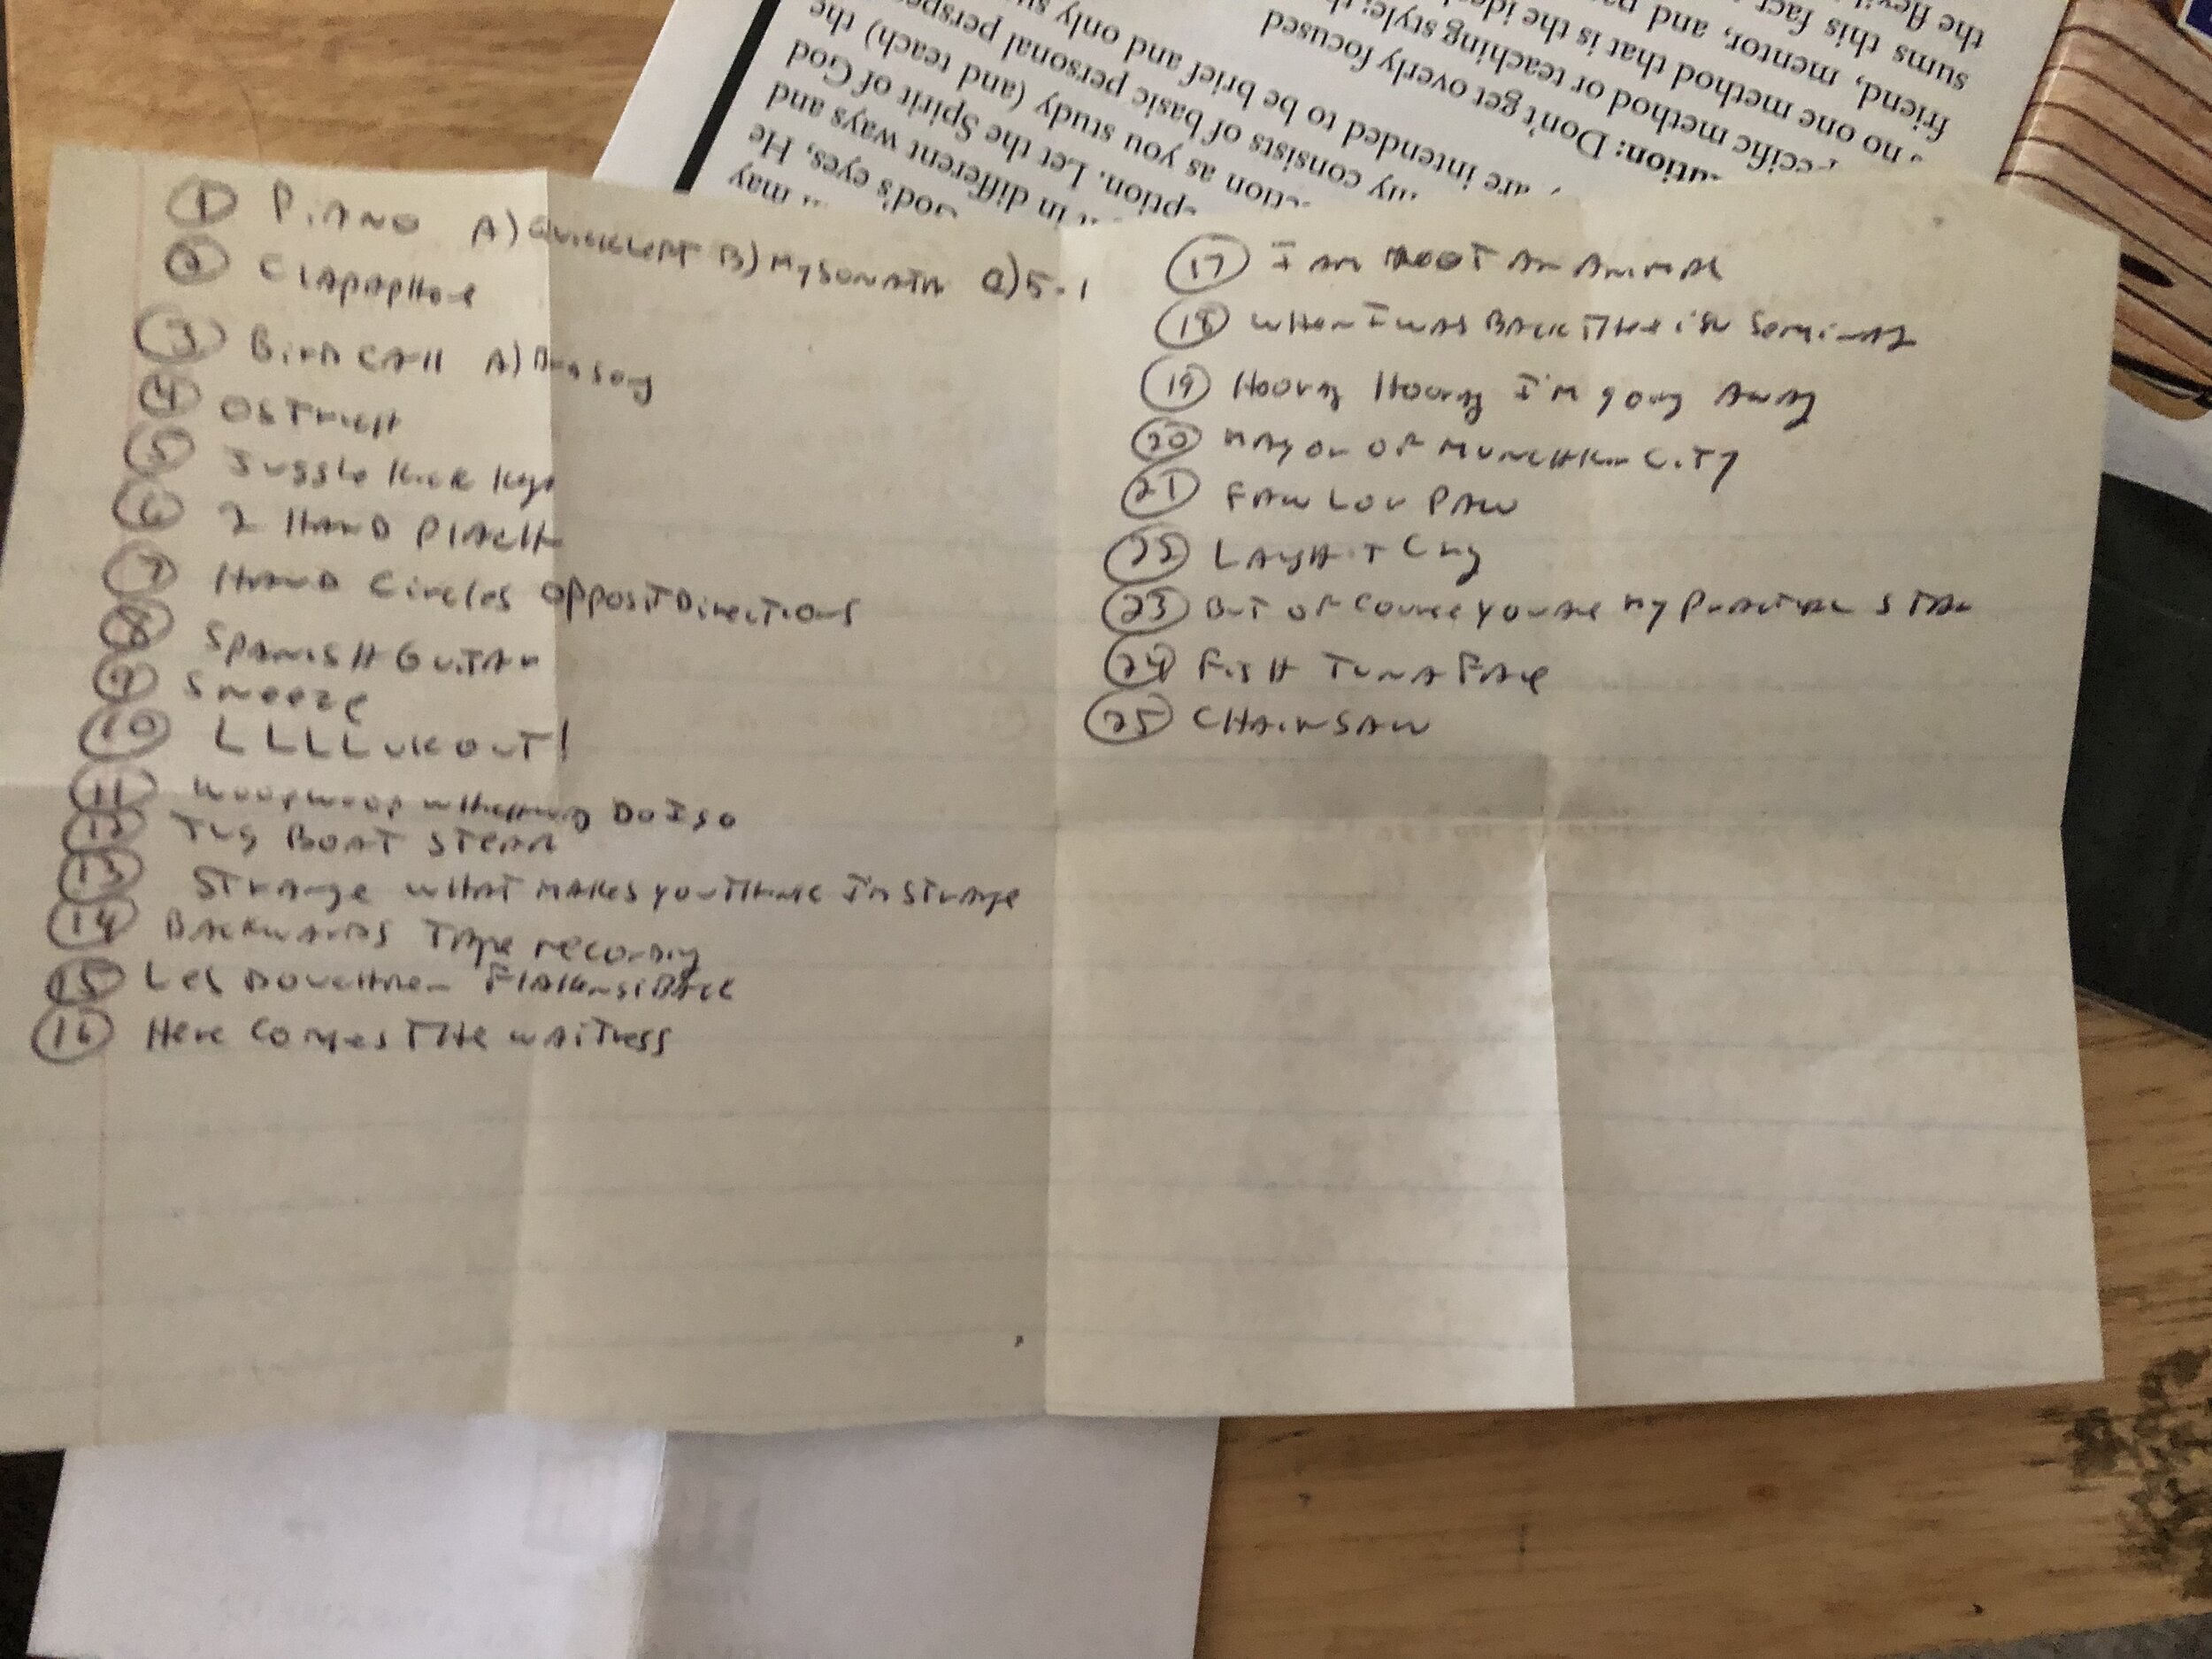 ① PIANO A) QUICKLEFT B) MY SONATA C) 5-1
② CLAPAPHONE
③ BIRD CALL A)
④ OSTRICH
⑤ JUGGLE KICK KEYS
⑥ 2 HAND
⑦ HAND CIRCLES OPPOSIT DIRECTIONS
⑧ SPANISH GUITAR
⑨ SNEEZE
⑩ LLLLUKOUT!
⑪ WOOPWOOP DO I GO
⑫ TUG BOAT STEAM
⑬ STRANGE WHAT MAKES YOU THINK I'M STRANGE
⑭ BACKWARDS TAPE RECORDING
⑮ LES
⑯ HERE COMES THE WAITRESS
⑰ I AM NOOT AN ANIMAL
⑱ WHEN I WAS BACK THERE IN SEMINARY
⑲ HOORAY HOORAY I'M GOING AWAY
⑳ MAYOR OF MUNCHKIN CITY
㉑ FAW LOU PAW
㉒ LAUGH IT CRY
㉓ BUT OF COURSE YOU ARE MY STAR
㉔ FISH TUNA FACE
㉕ CHAINSAW
may
in different ways and
God's eyes, He
ption. Let the Spirit of God
ction as you study (and teach) the
my consists of basic personal perspec
are intended to be brief and only su
ution: Don't get overly focused
ecific method or teaching style; th
no one method that is the ideal
friend, mentor, and pa
sums this fact
the flexi